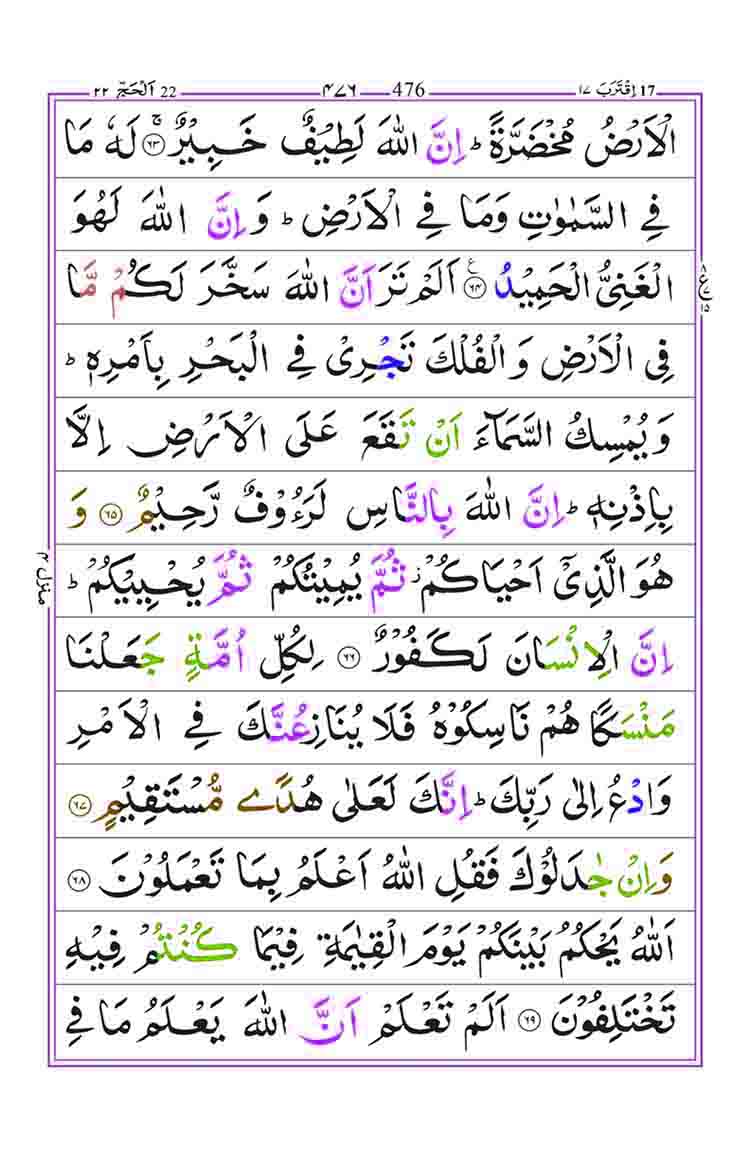 اِقْتَرَبَ ١٧ 17 ٤٧٦ 476 اَلْحَجّ ٢٢ 22
الْاَرْضُ مُخْضَرَّةً ؕ اِنَّ اللّٰهَ لَطِيْفٌ خَبِيْرٌ ۚ‏﴿۶۳﴾ لَهٗ مَا
فِى السَّمٰوٰتِ وَمَا فِى الْاَرْضِ ؕ وَاِنَّ اللّٰهَ لَهُوَ
الْغَنِىُّ الْحَمِيْدُ ﴿۶۴﴾ ع اَلَمْ تَرَ اَنَّ اللّٰهَ سَخَّرَ لَكُمْ مَّا
فِى الْاَرْضِ وَالْفُلْكَ تَجْرِىْ فِى الْبَحْرِ بِاَمْرِهٖ ؕ
وَيُمْسِكُ السَّمَآءَ اَنْ تَقَعَ عَلَى الْاَرْضِ اِلَّا
بِاِذْنِهٖ ؕ اِنَّ اللّٰهَ بِالنَّاسِ لَرَءُوْفٌ رَّحِيْمٌ ﴿۶۵﴾ وَ
هُوَ الَّذِىْۤ اَحْيَاكُمْ ز ثُمَّ يُمِيْتُكُمْ ثُمَّ يُحْيِيْكُمْ ؕ
اِنَّ الْاِنْسَانَ لَكَفُوْرٌ ﴿۶۶﴾ لِكُلِّ اُمَّةٍ جَعَلْنَا
مَنْسَكًا هُمْ نَاسِكُوْهُ فَلَا يُنَازِعُنَّكَ فِى الْاَمْرِ
وَادْعُ اِلٰى رَبِّكَ ؕ اِنَّكَ لَعَلٰى هُدًى مُّسْتَقِيْمٍ ﴿۶۷﴾
وَاِنْ جٰدَلُوْكَ فَقُلِ اللّٰهُ اَعْلَمُ بِمَا تَعْمَلُوْنَ ﴿۶۸﴾
اَللّٰهُ يَحْكُمُ بَيْنَكُمْ يَوْمَ الْقِيٰمَةِ فِيْمَا كُنْتُمْ فِيْهِ
تَخْتَلِفُوْنَ ﴿۶۹﴾ اَلَمْ تَعْلَمْ اَنَّ اللّٰهَ يَعْلَمُ مَا فِى
ع ٨ ١٥
منزل ٤